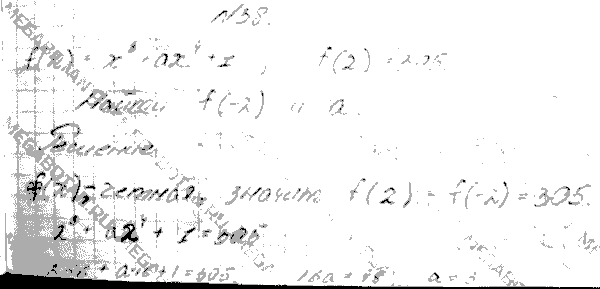 N38.
f(x) = x⁸ + ax⁴ + 1, f(2) = 305
Найти f(-2) и a.
Решение
f(x) - четная, значит f(2) = f(-2) = 305.
2⁸ + a2⁴ + 1 = 305
+ a·16 + 1 = 305, 16a = 48, a = 3